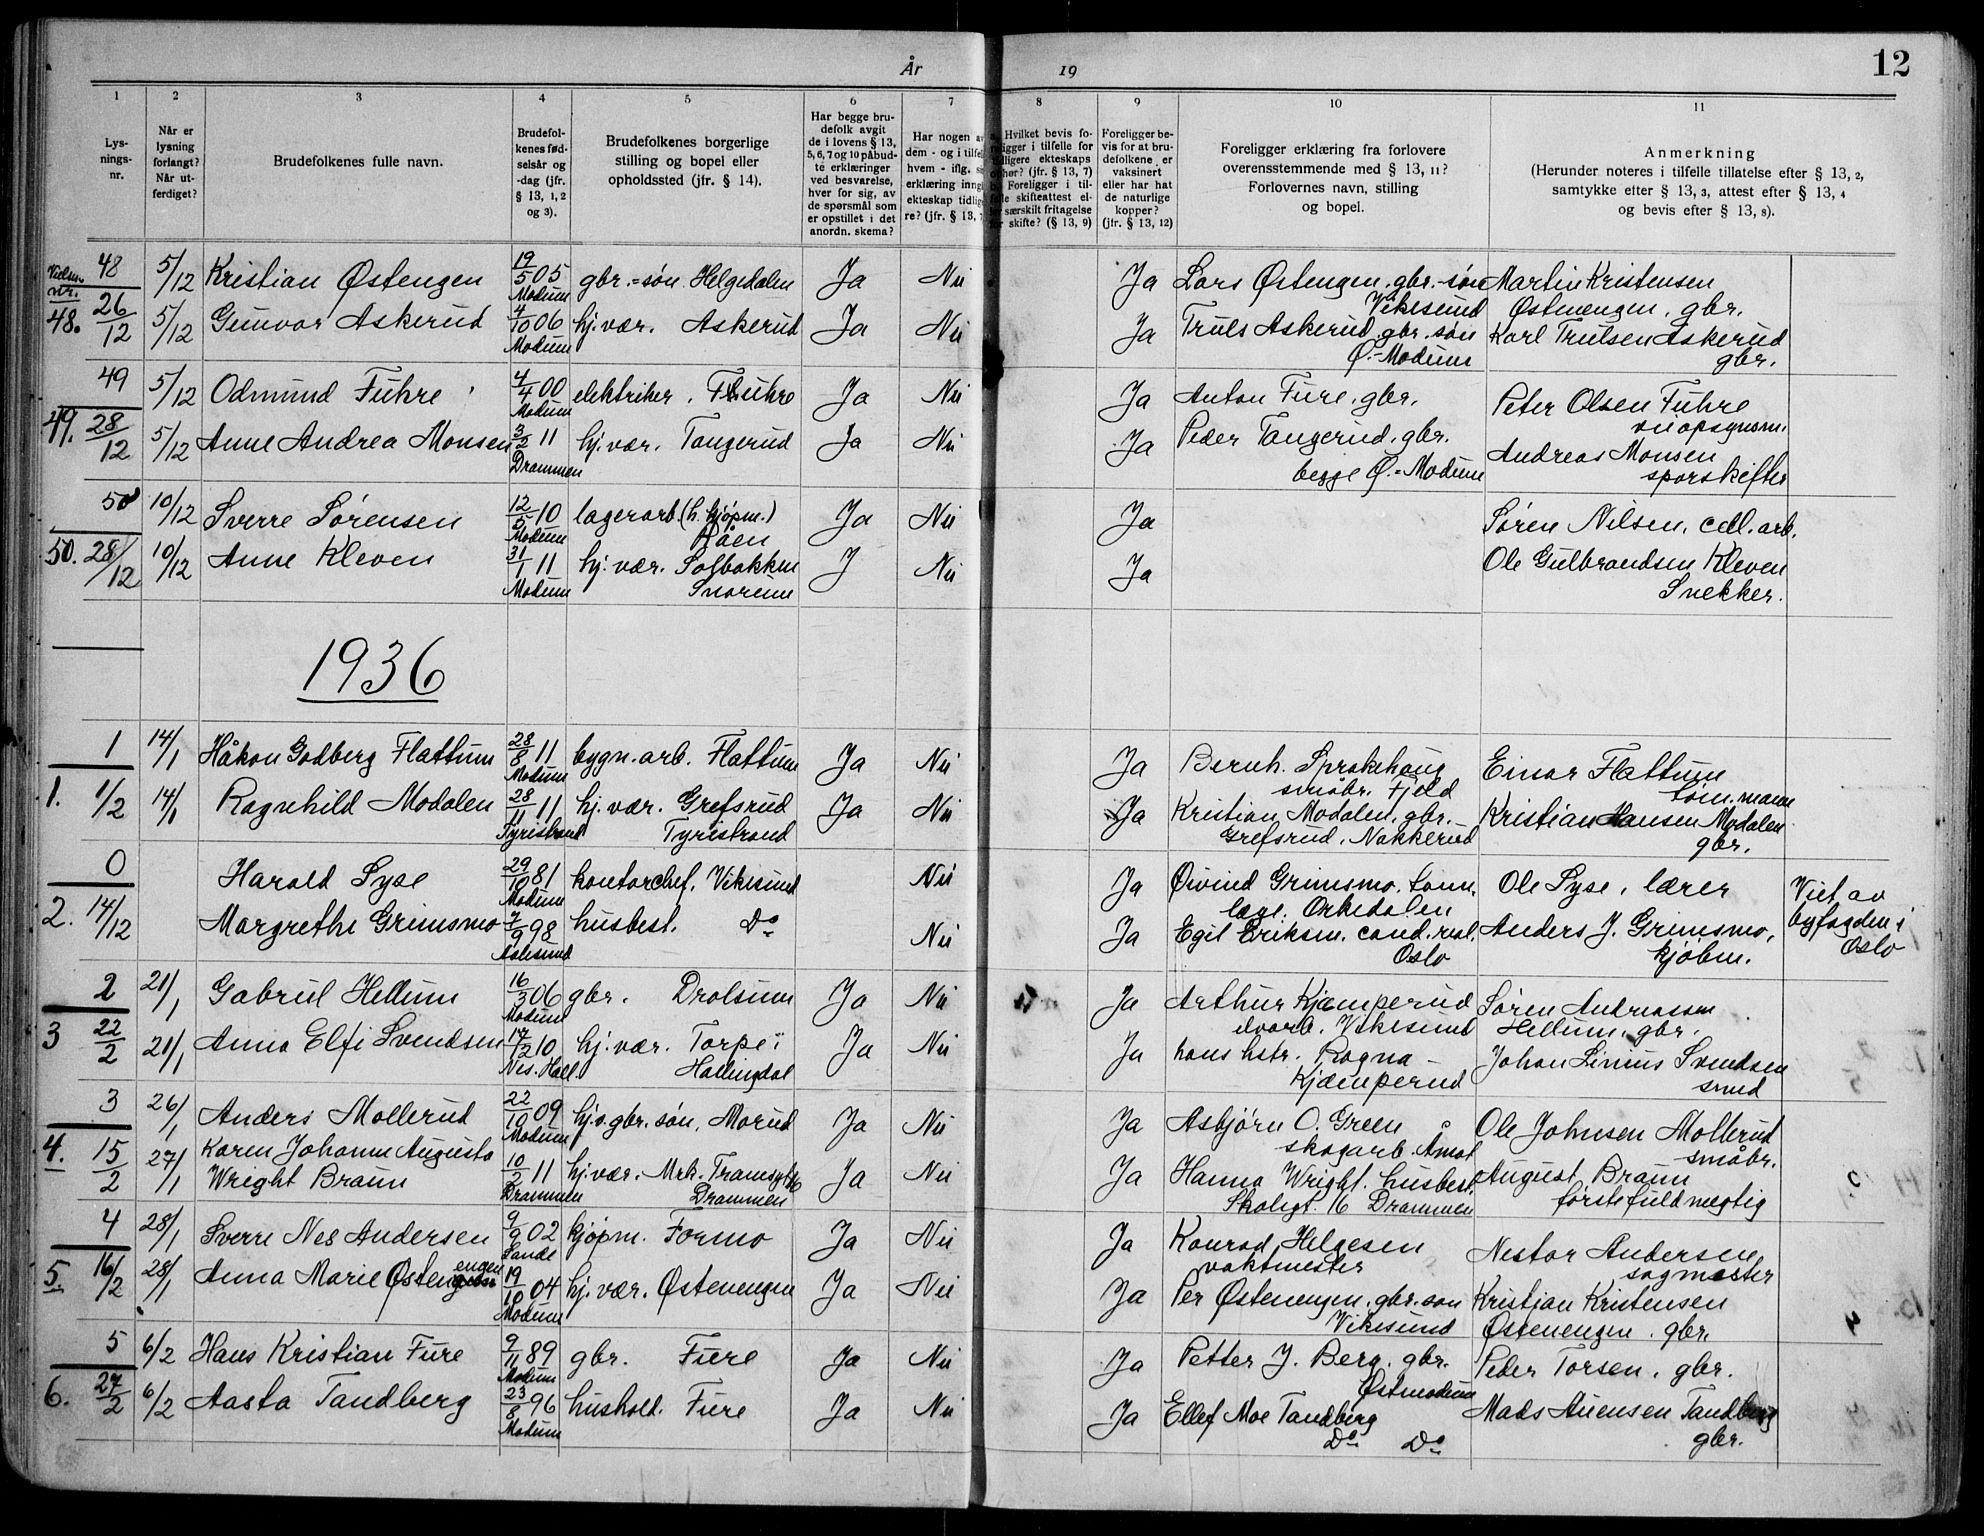 År 19 12
1 2 3 4 5 6 7 8 9 10 11
Lysningsnr.
Når er lysning forlangt? Når utferdiget?
Brudefolkenes fulle navn.
Brudefolkenes fødselsår og -dag (jfr. § 13, 1, 2 og 3).
Brudefolkenes borgerlige stilling og bopel eller opholdssted (jfr. § 14).
Har begge brudefolk avgit de i lovens § 13, 5, 6, 7 og 10 påbudte erklæringer ved besvarelse, hver for sig, av de spørsmål som er opstillet i det anordn. skema?
Har nogen av dem - og i tilfelle hvem - iflg. erklæring inngått ekteskap tidligere? (jfr. § 13,
Hvilket bevis foreligger i tilfelle for tidligere ekteskaps ophør? (jfr. § 13, 7) b. Foreligger i tilfelle skifteattest eller særskilt fritagelse for skifte? (§ 13, 9)
Foreligger bevis for at brudefolkene er vaksinert eller har hat de naturlige kopper? (jfr. § 13, 12)
Foreligger erklæring fra forlovere overensstemmende med § 13, 11? Forlovernes navn, stilling og bopel.
Anmerkning (Herunder noteres i tilfelle tillatelse efter § 13, 2, samtykke efter § 13, 3, attest efter § 13, 4 og bevis efter § 13, 8).
Vielses nr.
48 5/12 Kristian Østengen 19/5 05 Modum gbr.=søn. Helgedalen Ja Nei Ja Lars Østengen. gbr.-søn Vikesund Martin Kristensen Østenengen. gbr.
48. 26/12 5/12 Gunvor Askerud 4/10 06 Modum hj. vær. Askerud Ja Nei Ja Truls Askerud. gbr. søn Ø.-Modum Karl Trulsen Askerud gbr.
49 5/12 Odmund Fuhre 4/4 00 Modum elektriker. Fuhre Ja Nei Ja Anton Fure. gbr. Peter Olsen Fuhre
49. 28/12 5/12 Anne Andrea Monsen 3/2 11 Drammen hj. vær. Tangerud Ja Nei Ja Peder Tangerud. gbr. begge Ø.=Modum Andreas Monsen sporskifter
50 10/12 Sverre Sørensen 12/5 10 Modum lagerarb. (h. kjøpm.) Råen Ja Nei Ja Søren Nilsen. cell. arb.
50. 28/12 10/12 Anne Kleven 31/1 11 Modum hj. vær. Solbakken Snarum J Nei Ja Ole Gulbrandsen Kleven Snekker.
1936
1 14/1 Håkon Godberg Flattum 28/8 11 Modum bygn. arb. Flattum Ja Nei Ja Bernh. Sprakehaug småbr. Fjeld Einar Flattum tøm. mann
1. 1/2 14/1 Ragnhild Modalen 28/11 11 Tyristrand hj. vær. Grefsrud Tyristrand Ja Nei Ja Kristian Modalen. gbr. Grefsrud. Nakkerud Kristian Hansen Modalen gbr.
0 Harald Syse 29/10 81 Modum kontorchef. Vikesund Nei Ja Øivind Grimsmo. tann. læge. Orkedalen Ole Syse. lærer Viet av byfogden i Oslo
2. 14/12 Margrethe Grimsmo 7/9 98 Aalesund husbest. Do Nei Ja Egil Eriksen. cand. real. Oslo Anders J. Grimsmo, kjøbm.
2 21/1 Gabriel Hellum 16/3 06 Modum gbr. Drolsum Ja Nei Ja Arthur Kjæmperud Vikesund Søren Andreassen Hellum. gbr.
3 22/2 21/1 Anna Elfi Svendsen 17/12 10 Nes. Hall. hj. vær. Torpe i Hallingdal Ja Nei Ja hans hstr. Ragna Kjæmperud Johan Linius Svendsen smed
3 26/1 Anders Mollerud 22/10 09 Modum hj. v. gbr. søn. Morud Ja Nei Ja Asbjørn O. Green skogarb. Åmot Ole Johnsen Mollerud småbr.
4. 15/2 27/1 Karen Johanne Augusta Wright Braun 10/2 11 Drammen hj. vær. Drammen Ja Nei Ja Hanna Wright. husbest. Skolegt. 16 Drammen August Braun førstefuldmegtig
4 28/1 Sverre Nes Andersen 9/9 02 Sande kjøpm. Formo Ja Nei Ja Konrad Helgesen vaktmester Nestor Andersen sagmester
5. 16/2 28/1 Anna Marie Østenengen 19/10 04 Modum hj. vær. Østenengen Ja Nei Ja Per Østenengen. gbr. søn Vikesund Kristian Kristensen Østenengen. gbr.
5 6/2 Hans Kristian Fure 9/11 89 Modum gbr. Fure Ja Nei Ja Petter J. Berg. gbr. Østmodum Peder Torsen. gbr.
6. 27/2 6/2 Aasta Tandberg 23/8 96 Modum hushold. Fure Ja Nei Ja Ellef Moe Tandberg Do Do Mads Auensen Tandberg gbr.